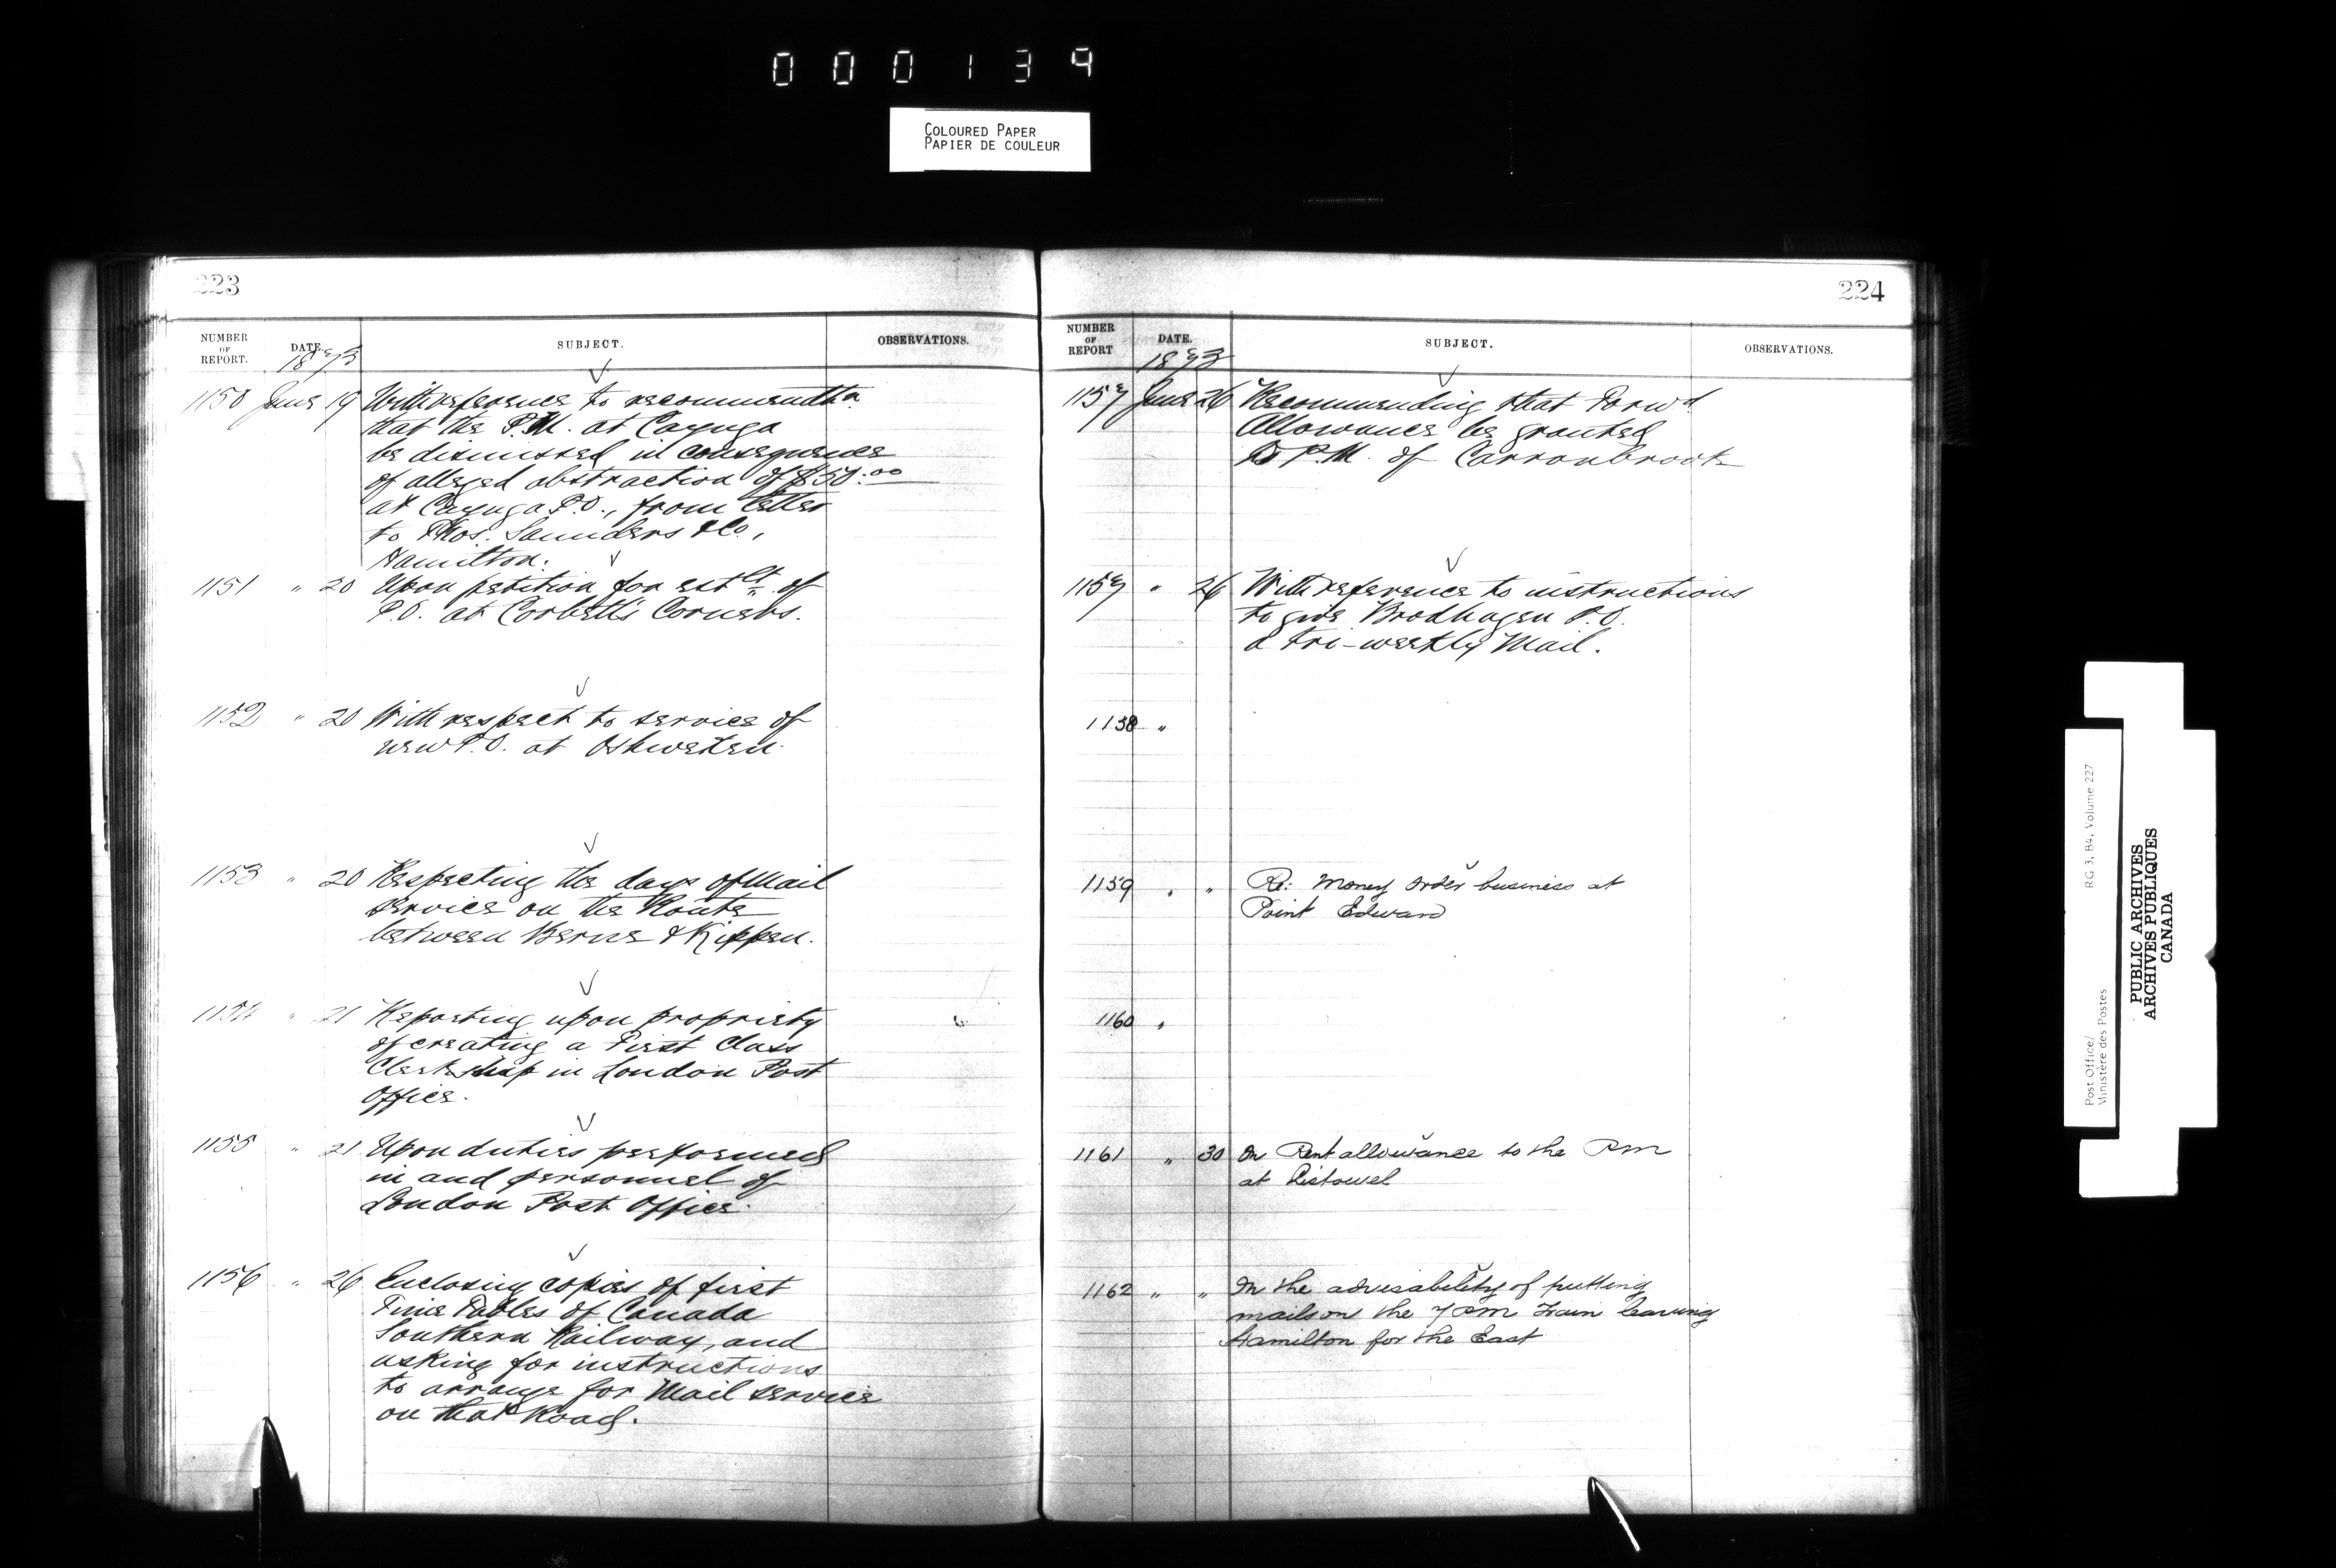 000139
COLOURED PAPER
PAPIER DE COULEUR
223
NUMBER OF REPORT. DATE. SUBJECT. OBSERVATIONS.
1873
1150 June 19 With reference to recommendt'n
that the P.M. at Cayuga
be dismissed in consequence
of alleged abstraction of $50.00
at Cayuga P.O., from letter
to Thos. Saunders & Co.,
Hamilton.
1151 " 20 Upon petition for estlt. of
P.O. at Corbett's Corners.
1152 " 20 With respect to service of
new P.O. at Oshweken.
1153 " 20 Respecting the days of Mail
service on the Route
between Berne & Kippen.
1154 " 21 Reporting upon propriety
of creating a First Class
Clerkship in London Post
Office.
1155 " 21 Upon duties performed
in and personnel of
London Post Office.
1156 " 26 Enclosing copies of first
Time Tables of Canada
Southern Railway, and
asking for instructions
to arrange for Mail service
on that Road.
224
NUMBER OF REPORT DATE. SUBJECT. OBSERVATIONS.
1873
1157 June 26 Recommending that Forwd
Allowance be granted
to P.M. of Carronbrook
1157 " 26 With reference to instructions
to give Brodhagen P.O.
a tri-weekly Mail.
1158 "
1159 " " Re: Money Order business at
Point Edward
1160 "
1161 " 30 On Rent allowance to the PM
at Listowel
1162 " " On the advisability of putting
mails on the 7 PM Train leaving
Hamilton for the East
Post Office/
Ministère des Postes
RG 3, B4, Volume 227
PUBLIC ARCHIVES
ARCHIVES PUBLIQUES
CANADA